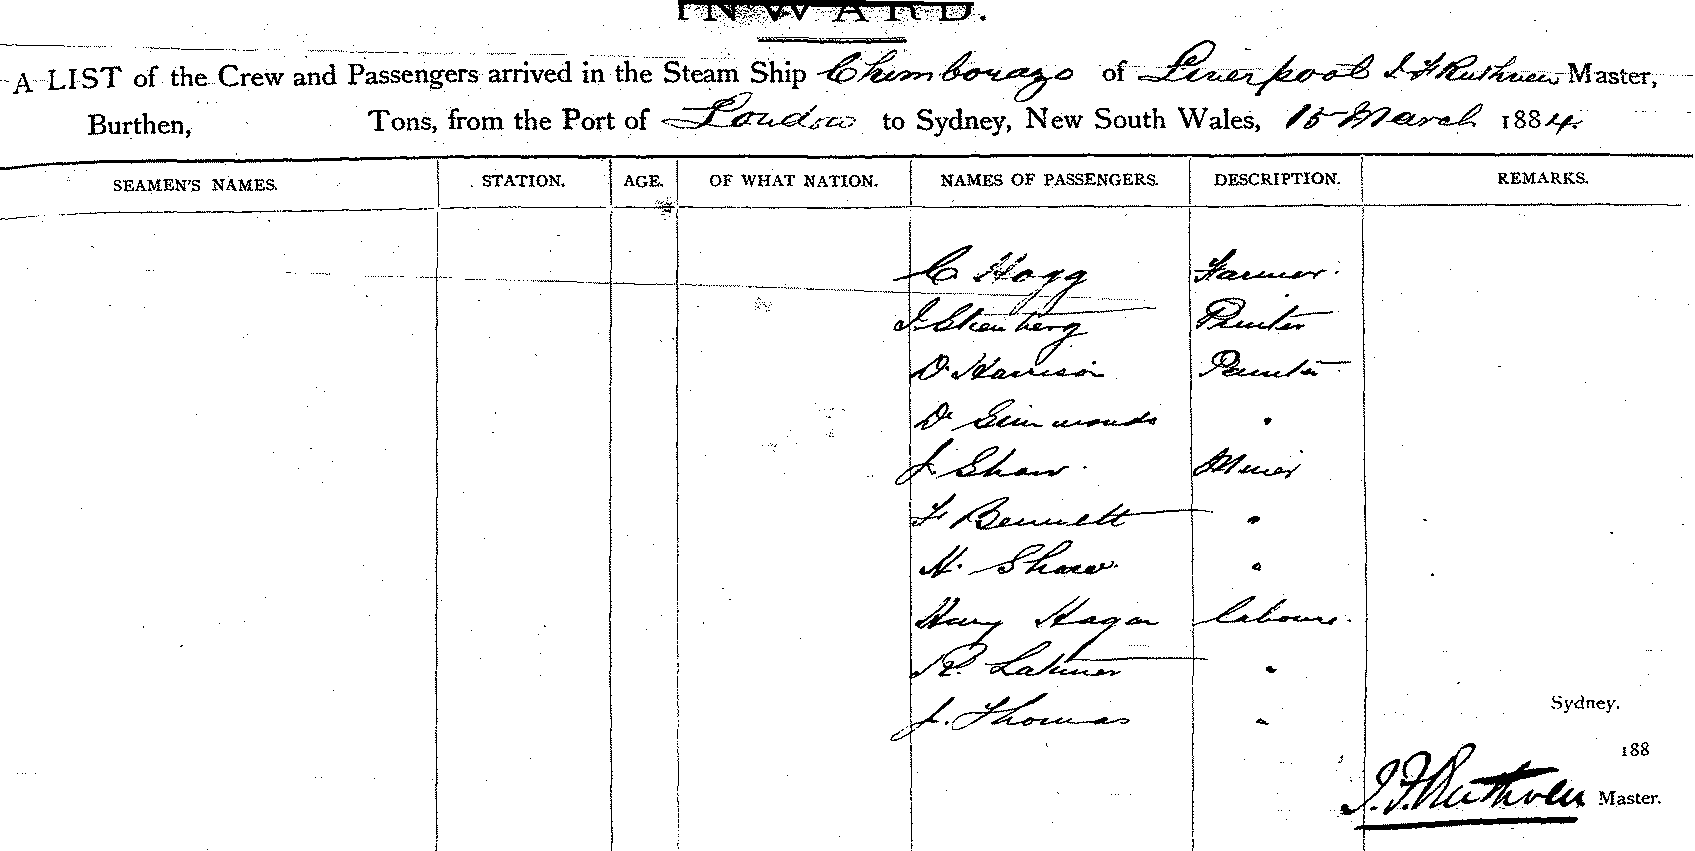 INWARD.
A LIST of the Crew and Passengers arrived in the Steam Ship Chimborazo of Liverpool J. F. Ruthven Master,
Burthen, Tons, from the Port of London to Sydney, New South Wales, 15 March 1884.
SEAMEN'S NAMES. STATION. AGE. OF WHAT NATION. NAMES OF PASSENGERS. DESCRIPTION. REMARKS.
C Hogg Farmer.
Printer
D. Harrison Painter
D. Simmonds "
J. Shaw. Miner
F Bennett "
H. Shaw. "
Harry Hagan
R. Latimer "
J. Thomas "
Sydney.
188
J. F. Ruthven Master.